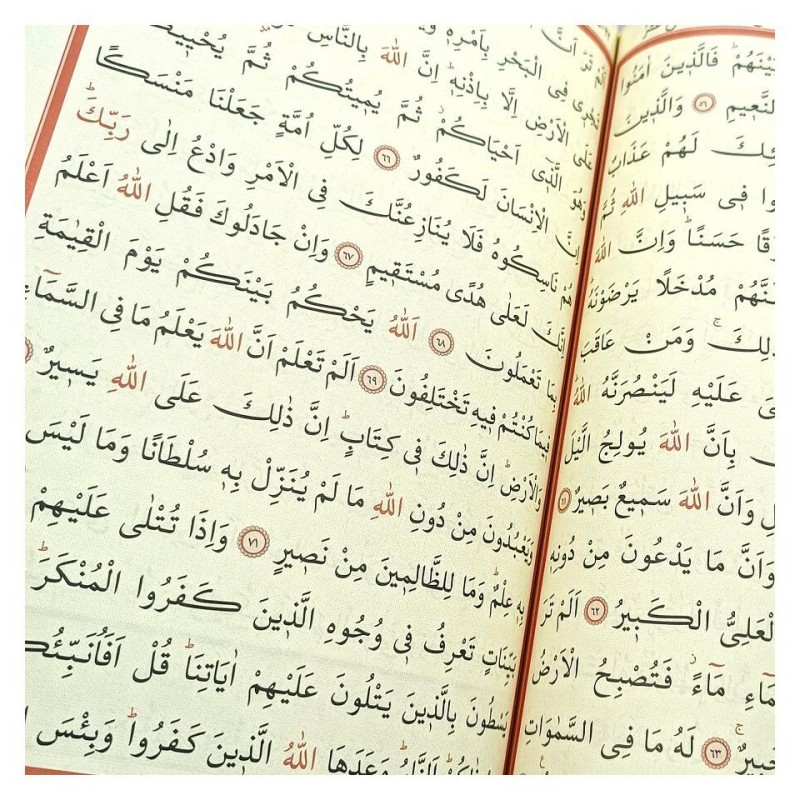 بَيْنَهُمْ فَالَّذِينَ اٰمَنُوا
النَّعِيمِ ٥٦ وَالَّذِينَ
ئِكَ لَهُمْ عَذَابٌ
وا فِى سَبِيلِ اللّٰهِ ثُمَّ
قًا حَسَنًا وَاِنَّ اللّٰهَ
نَّهُمْ مُدْخَلًا يَرْضَوْنَهُ
ذٰلِكَ وَمَنْ عَاقَبَ
ىَ عَلَيْهِ لَيَنْصُرَنَّهُ اللّٰهُ
بِاَنَّ اللّٰهَ يُولِجُ الَّيْلَ
لِ وَاَنَّ اللّٰهَ سَمِيعٌ بَصِيرٌ ٦١
وَاَنَّ مَا يَدْعُونَ مِنْ دُونِهِ
الْعَلِىُّ الْكَبِيرُ ٦٢ اَلَمْ تَرَ
مَاءِ مَاءً فَتُصْبِحُ الْاَرْضُ
خَبِيرٌ ٦٣ لَهُ مَا فِى السَّمٰوَاتِ
تَرَ اَنَّ
تَجْرِى فِى الْبَحْرِ بِاَمْرِهِ
عَلَى الْاَرْضِ اِلَّا بِاِذْنِهِ اِنَّ اللّٰهَ بِالنَّاسِ
وَهُوَ الَّذِى اَحْيَاكُمْ ثُمَّ يُمِيتُكُمْ ثُمَّ يُحْيِيكُمْ
اِنَّ الْاِنْسَانَ لَكَفُورٌ ٦٦ لِكُلِّ اُمَّةٍ جَعَلْنَا مَنْسَكًا
هُمْ نَاسِكُوهُ فَلَا يُنَازِعُنَّكَ فِى الْاَمْرِ وَادْعُ اِلٰى رَبِّكَ
اِنَّكَ لَعَلٰى هُدًى مُسْتَقِيمٍ ٦٧ وَاِنْ جَادَلُوكَ فَقُلِ اللّٰهُ اَعْلَمُ
بِمَا تَعْمَلُونَ ٦٨ اَللّٰهُ يَحْكُمُ بَيْنَكُمْ يَوْمَ الْقِيٰمَةِ
فِيمَا كُنْتُمْ فِيهِ تَخْتَلِفُونَ ٦٩ اَلَمْ تَعْلَمْ اَنَّ اللّٰهَ يَعْلَمُ مَا فِى السَّمَاءِ
وَالْاَرْضِ اِنَّ ذٰلِكَ فِى كِتَابٍ اِنَّ ذٰلِكَ عَلَى اللّٰهِ يَسِيرٌ
وَيَعْبُدُونَ مِنْ دُونِ اللّٰهِ مَا لَمْ يُنَزِّلْ بِهِ سُلْطَانًا وَمَا لَيْسَ
بِهِ عِلْمٌ وَمَا لِلظَّالِمِينَ مِنْ نَصِيرٍ ٧١ وَاِذَا تُتْلٰى عَلَيْهِمْ
بَيِّنَاتٍ تَعْرِفُ فِى وُجُوهِ الَّذِينَ كَفَرُوا الْمُنْكَرَ
يَسْطُونَ بِالَّذِينَ يَتْلُونَ عَلَيْهِمْ اٰيَاتِنَا قُلْ اَفَاُنَبِّئُكُ
اَلنَّارُ وَعَدَهَا اللّٰهُ الَّذِينَ كَفَرُوا وَبِئْسَ